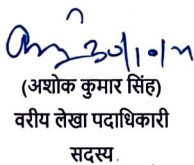 30/10/11
(अशोक कुमार सिंह)
वरीय लेखा पदाधिकारी
सदस्य